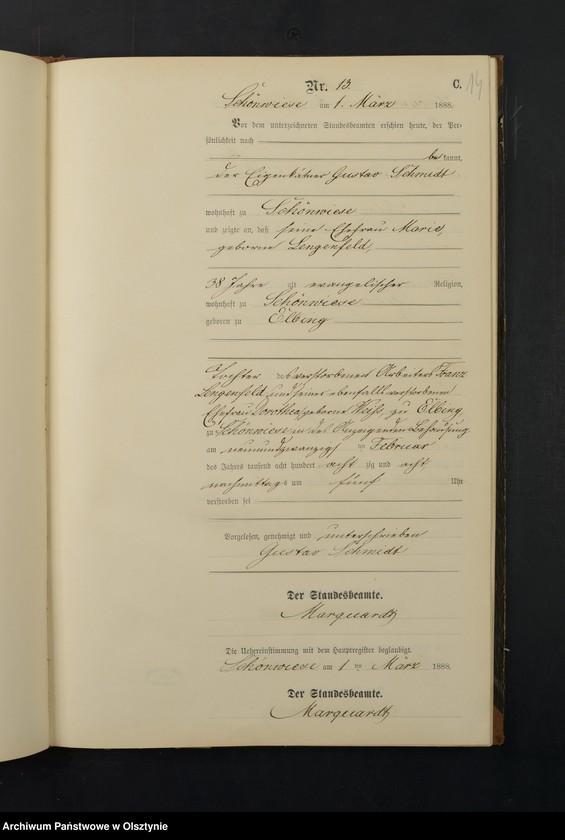 Nr. 13.
C.
14
Schönwiese am 1. März 1888.
Vor dem unterzeichneten Standesbeamten erschien heute, der Per-
sönlichkeit nach
be kannt,
der Eigenkätner Gustav Schmidt
wohnhaft zu Schönwiese
und zeigte an, daß seine Ehefrau Marie,
geborne Lengenfeld,
38 Jahre alt evangelischer Religion,
wohnhaft zu Schönwiese
geboren zu Elbing
Tochter des verstorbenen Arbeiters Franz
Lengenfeld und seiner ebenfalls verstorbenen
Ehefrau Dorothea geborne Weiß, zu Elbing
zu Schönwiese in des Anzeigenden Behausung
am neunundzwanzigsten Februar
des Jahres tausend acht hundert acht zig und acht
nachmittags um fünf Uhr
verstorben sei
Vorgelesen, genehmigt und unterschrieben
Gustav Schmidt
Der Standesbeamte.
Marquardt
Die Uebereinstimmung mit dem Hauptregister beglaubigt.
Schönwiese am 1 ten März 1888.
Der Standesbeamte.
Marquardt
Archiwum Państwowe w Olsztynie